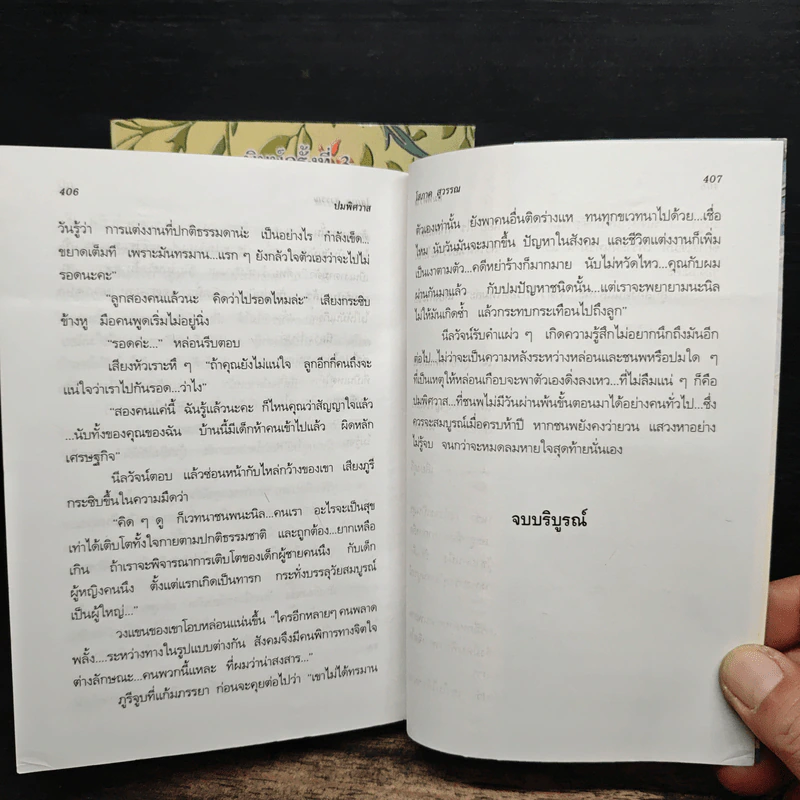 พิมพ์ครั้งที่ 3
406
ปมพิศวาส
วันรู้ว่า การแต่งงานที่ปกติธรรมดาน่ะ เป็นอย่างไร กำลังเข็ด...
ขยาดเต็มที เพราะมันทรมาน...แรก ๆ ยังกลัวใจตัวเองว่าจะไปไม่
รอดนะคะ”
“ลูกสองคนแล้วนะ คิดว่าไปรอดไหมล่ะ” เสียงกระซิบ
ข้างหู มือคนพูดเริ่มไม่อยู่นิ่ง
“รอดค่ะ...” หล่อนรีบตอบ
เสียงหัวเราะหึ ๆ “ถ้าคุณยังไม่แน่ใจ ลูกอีกกี่คนถึงจะ
แน่ใจว่าเราไปกันรอด...ว่าไง”
“สองคนแค่นี้ ฉันรู้แล้วนะคะ ก็ไหนคุณว่าสัญญาใจแล้ว
...นับทั้งของคุณของฉัน บ้านนี้มีเด็กห้าคนเข้าไปแล้ว ผิดหลัก
เศรษฐกิจ”
นีลวัจน์ตอบ แล้วซ่อนหน้ากับไหล่กว้างของเขา เสียงภูรี
กระซิบขึ้นในความมืดว่า
“คิด ๆ ดู ก็เวทนาชนพนะนิล...คนเรา อะไรจะเป็นสุข
เท่าได้เติบโตทั้งใจกายตามปกติธรรมชาติ และถูกต้อง...ยากเหลือ
เกิน ถ้าเราจะพิจารณาการเติบโตของเด็กผู้ชายคนนึง กับเด็ก
ผู้หญิงคนนึง ตั้งแต่แรกเกิดเป็นทารก กระทั่งบรรลุวัยสมบูรณ์
เป็นผู้ใหญ่...”
วงแขนของเขาโอบหล่อนแน่นขึ้น “ใครอีกหลายๆ คนพลาด
พลั้ง....ระหว่างทางในรูปแบบต่างกัน สังคมจึงมีคนพิการทางจิตใจ
ต่างลักษณะ...คนพวกนี้แหละ ที่ผมว่าน่าสงสาร...”
ภูรีจูบที่แก้มภรรยา ก่อนจะคุยต่อไปว่า “เขาไม่ได้ทรมาน
โสภาค สุวรรณ
407
ตัวเองเท่านั้น ยังพาคนอื่นติดร่างแห ทนทุกขเวทนาไปด้วย...เชื่อ
ไหม นับวันมันจะมากขึ้น ปัญหาในสังคม และชีวิตแต่งงานก็เพิ่ม
เป็นเงาตามตัว...คดีหย่าร้างก็มากมาย นับไม่หวัดไหว...คุณกับผม
ผ่านกันมาแล้ว กับปมปัญหาชนิดนั้น...แต่เราจะพยายามนะนิล
ไม่ให้มันเกิดซ้ำ แล้วกระทบกระเทือนไปถึงลูก”
นีลวัจน์รับคำแผ่ว ๆ เกิดความรู้สึกไม่อยากนึกถึงมันอีก
ต่อไป...ไม่ว่าจะเป็นความหลังระหว่างหล่อนและชนพหรือปมใด ๆ
ที่เป็นเหตุให้หล่อนเกือบจะพาตัวเองดิ่งลงเหว...ที่ไม่ลืมแน่ ๆ ก็คือ
ปมพิศวาส...ที่ชนพไม่มีวันผ่านพ้นขั้นตอนมาได้อย่างคนทั่วไป...ซึ่ง
ควรจะสมบูรณ์เมื่อครบห้าปี หากชนพยังคงว่ายวน แสวงหาอย่าง
ไม่รู้จบ จนกว่าจะหมดลมหายใจสุดท้ายนั่นเอง
จบบริบูรณ์